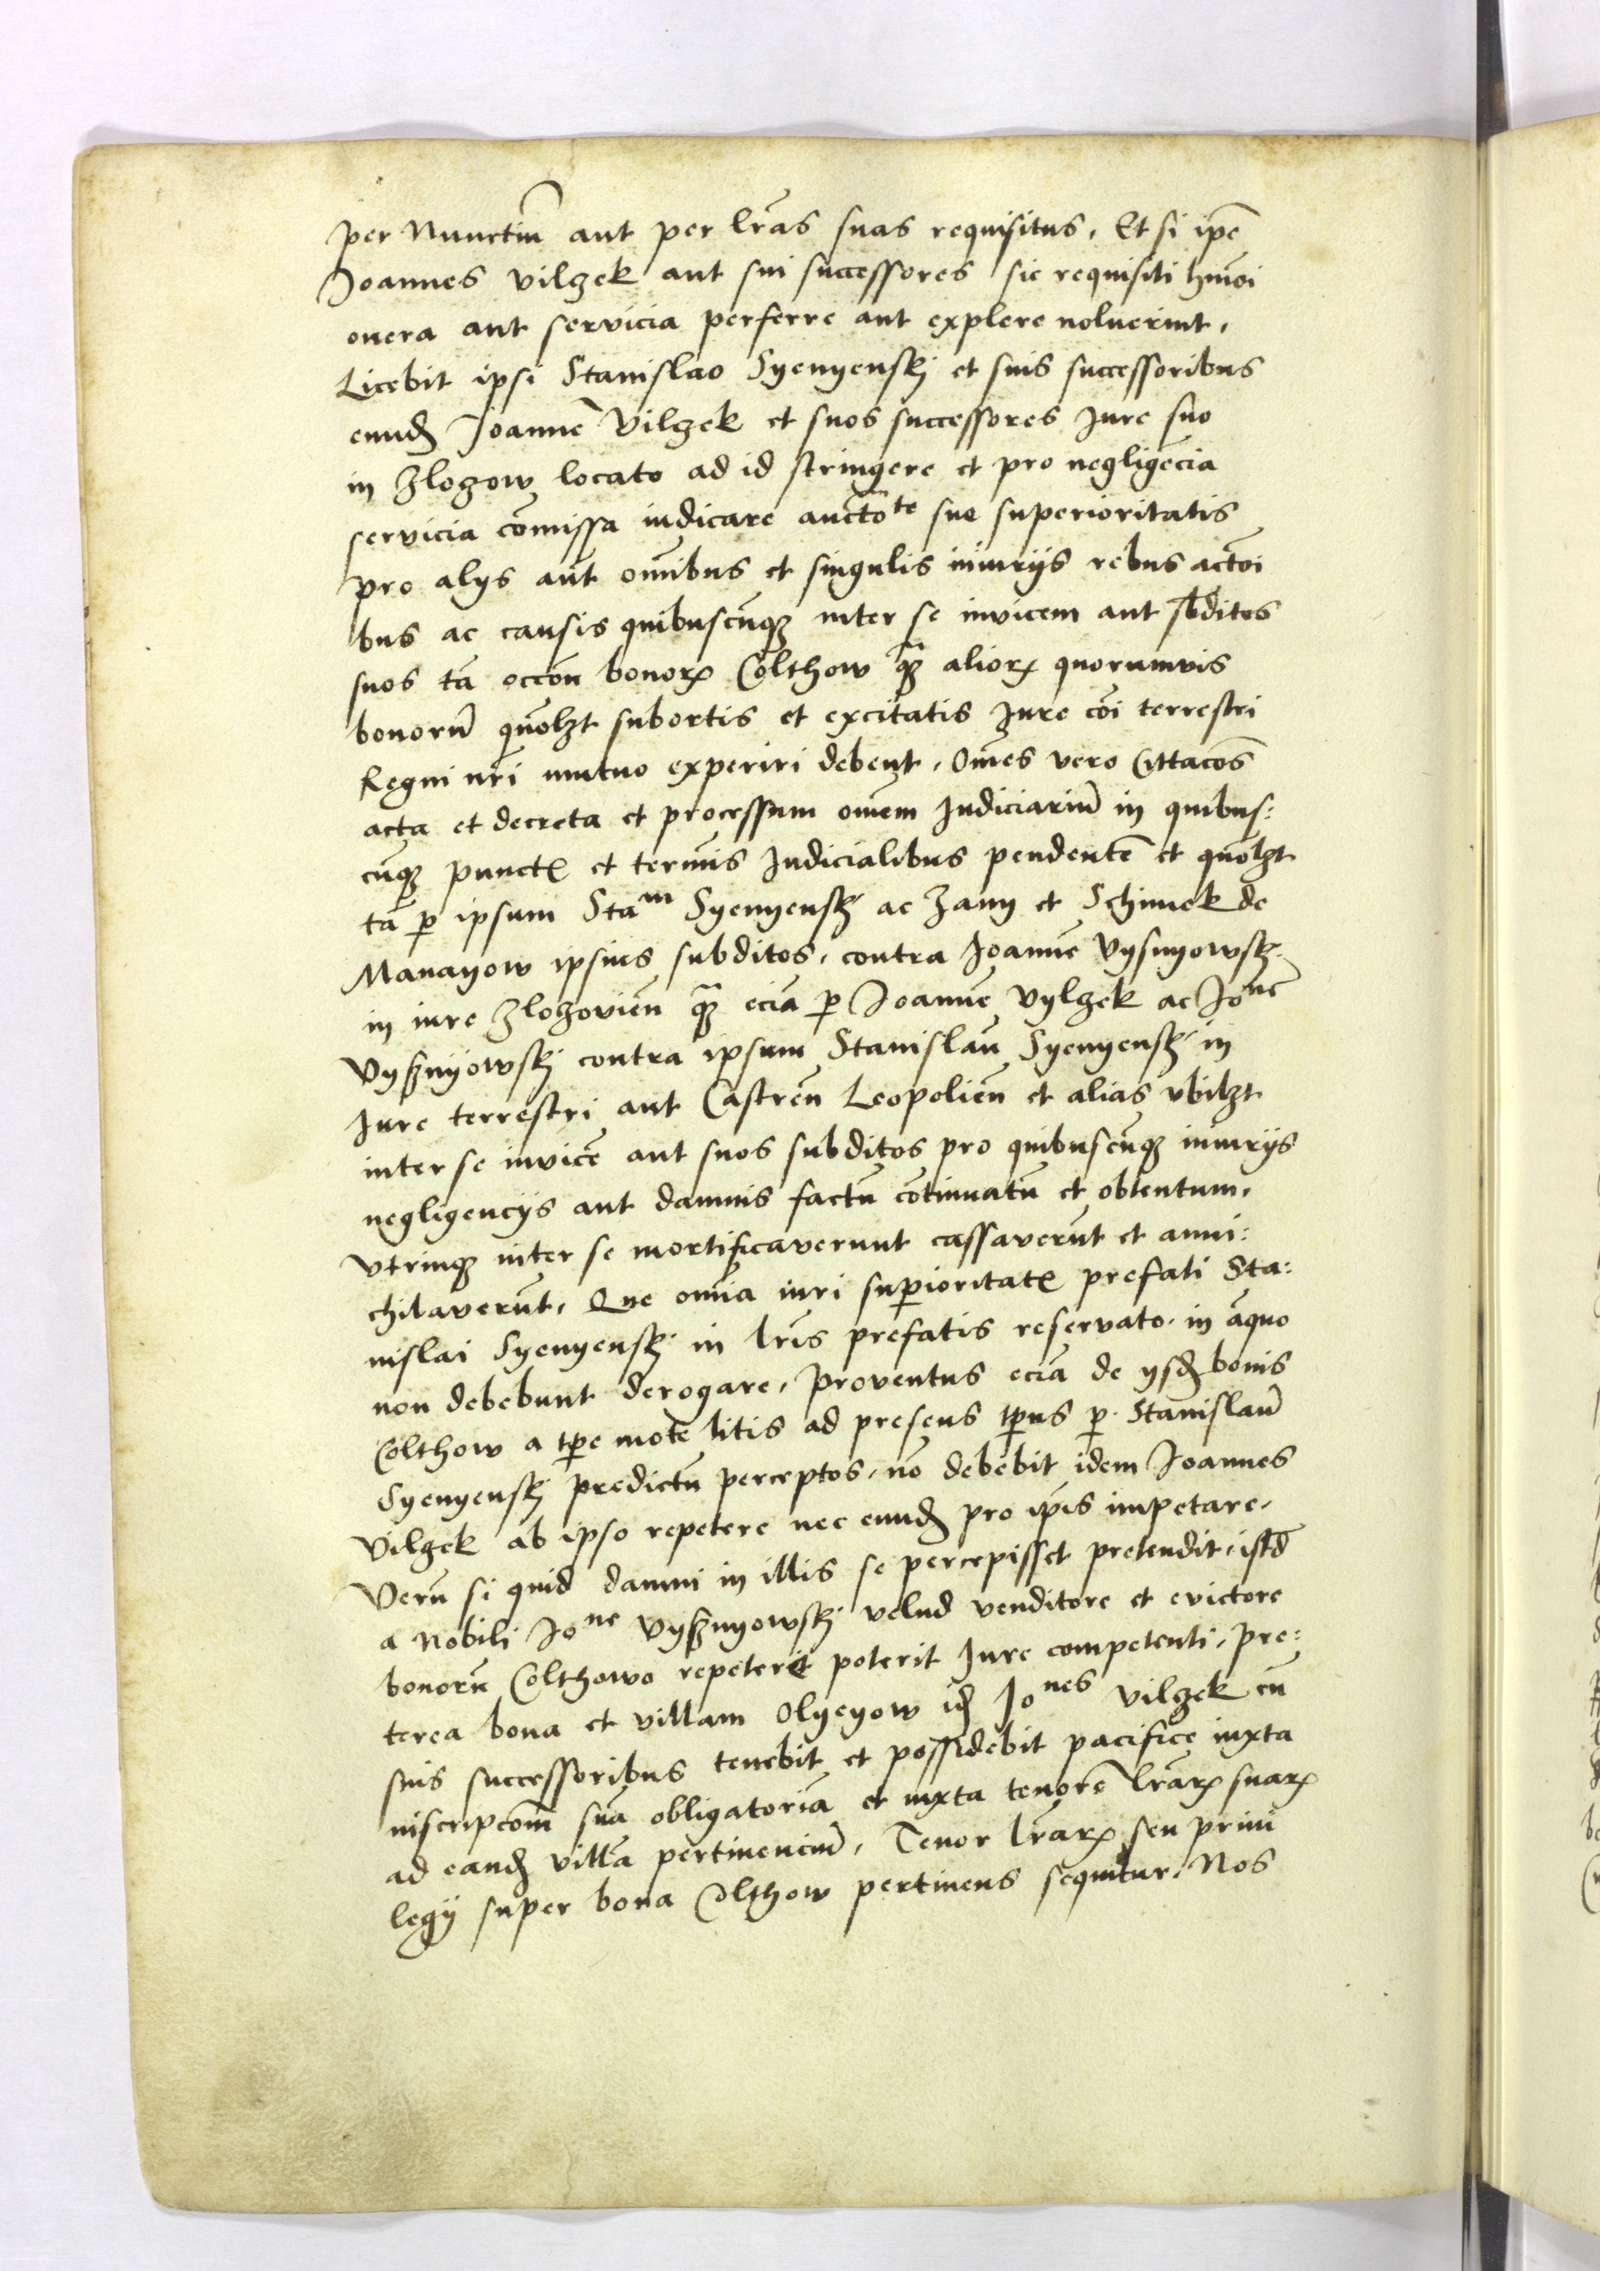 per Nunctiū aut per lr̄as suas requisitus, Et si ip̄e
Joannes Vilgek aut sui successores sic requisiti hmōi
onera aut servicia perferre aut explere noluerint,
Licebit ipsi Stanislao Syenyenskj et suis successoribus
eundꝫ Joannē Vilgek et suos successores Jure suo
in Zlogow locato ad id stringere et pro negligēcia
servicia cōmissa iudicare auctōte sue superioritatis
pro alys aūt om̄ibus et singulis iniurijs rebus actōi
bus ac causis quibuscūqꝫ inter se invicem aut sbditos
suos tā occōn bonorꝝ Colthow qꝫ̄ aliorꝝ quorumvis
bonorū quōlꝫt subortis et excitatis Jure cōi terrestri
Regni nr̄i mutuo experiri debent, Om̄es vero Cittacōs
acta et decreta et processum om̄em Judiciariū in quibus:
cūqꝫ punctꝭ et term̄is Judicialibus pendentē et quōlꝫt
tā ꝑ ipsum Staᵐ Syenyenskj ac Zany et Schimek de
Manayow ipsius subditos, contra Joannē Vysnyowskj
in iure Zlogovien̄ qꝫ̄ eciā ꝑ Joannē Vylgek ac Joⁿᵉ
Vyßnyowskj contra ipsum Stanislaū Syenyenskj in
Jure terrestri aut Castren̄ Leopolien̄ et alias vbilꝫt
inter se invicē aut suos subditos pro quibuscūqꝫ iniurijs
negligencijs aut damnis factū cōtinuatū et obtentum,
vtrinqꝫ inter se mortificaverunt cassaverūt et anni:
chilaverūt, Que om̄ia iuri sup̄ioritatꝭ prefati Sta:
nislai Syenyenskj in lr̄is prefatis reservato, in āquo
non debebunt derogare, proventus eciā de ysdꝫ bonis
Colthow a tp̄e mote litis ad presens tp̄us ꝑ Stanislaū
Syenyenskj predictū perceptos, nō debebit idem Joannes
Vilgek ab ipso repetere nec eundꝫ pro ip̄is impetare,
Verū si quid damni in illis se percepisset pretendit, istd̄
a Nobili Joⁿᵉ Vyßnyowskj velud venditore et evictore
bonorū Colthowo repeterit poterit Jure competenti, pre:
terea bona et villam Olyeyow idꝫ Joⁿᵉˢ Vilgek cū
suis successoribus tenebit et possidebit pacifice iuxta
inscripcōm̄ suā obligatoriā et iuxta tenorē lr̄arꝝ suarꝝ
ad eandꝫ villā pertinenciū, Tenor lr̄arꝝ seu priui
legij super bona Colthow pertinens sequitur, Nos